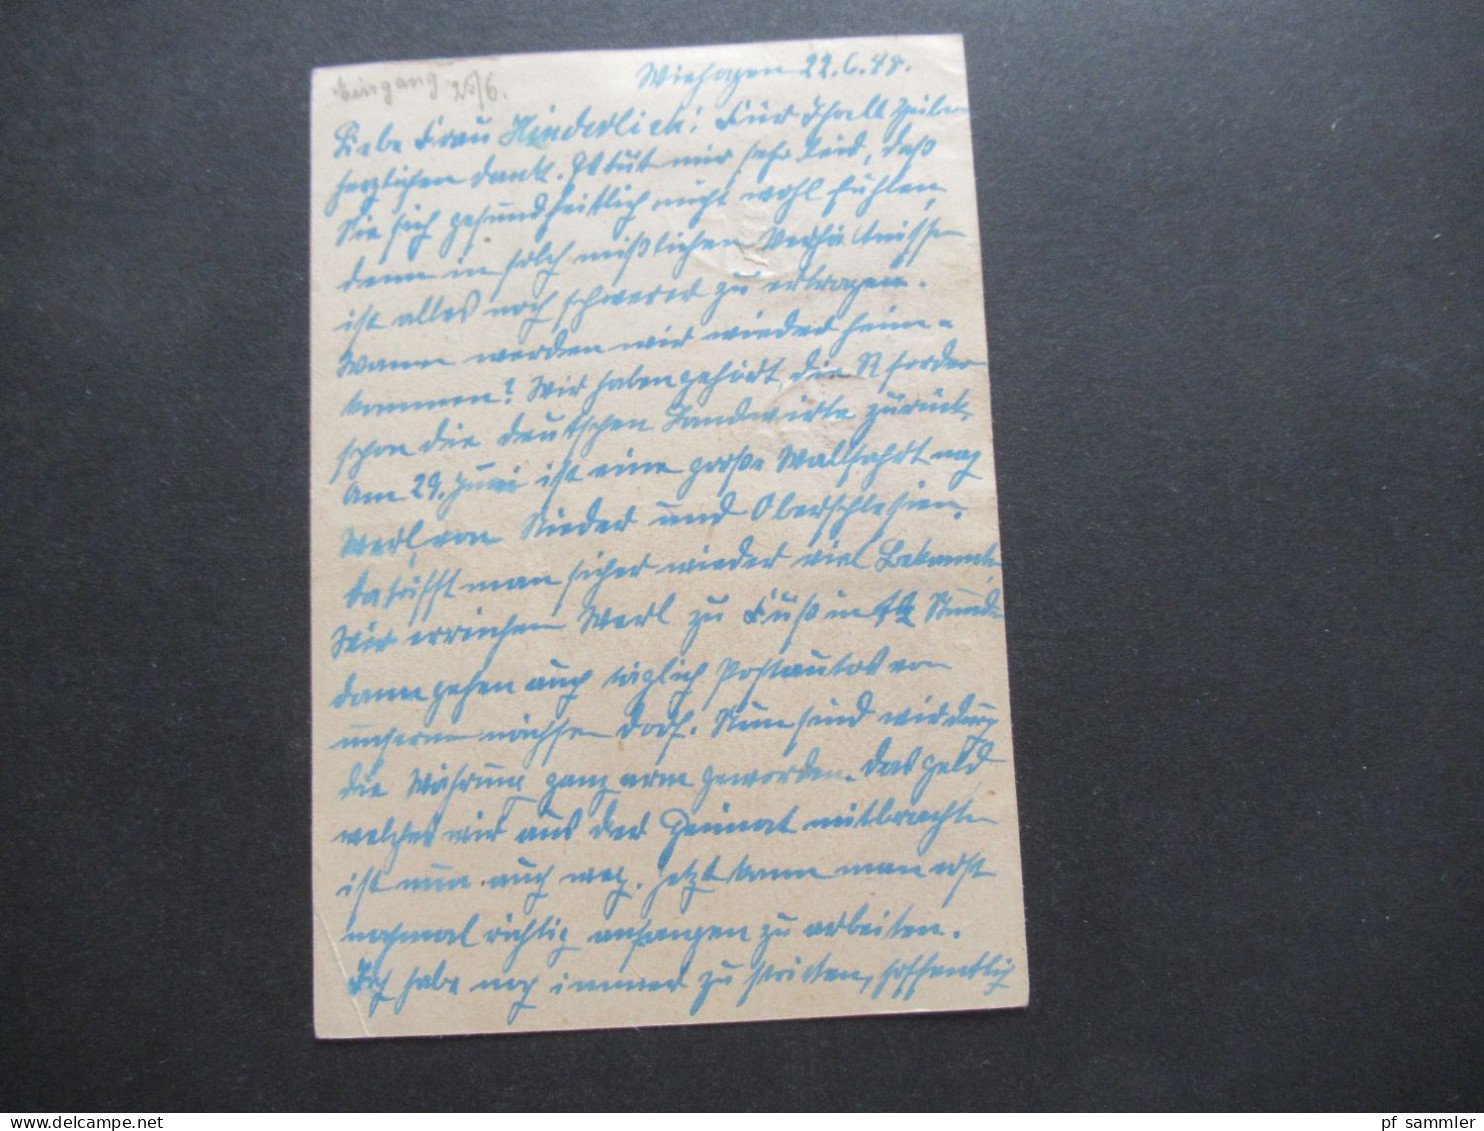 Eingang 25/6.
Wiehagen 22.6.48.
Liebe Frau Hinderlich! Für Ihre lb Zeilen
herzlichen Dank. Es tut mir sehr leid, daß
Sie sich gesundheitlich nicht wohl fühlen,
denn in solch mißlichen Verhältnisse
ist alles noch schwerer zu ertragen.
Wann werden wir wieder heim-
kommen? Wir haben gehört, die R fordern
schon die deutschen Landwirte zurück.
Am 29. Juni ist eine große Wallfahrt nach
Werl, von Nieder und Oberschlesien.
da trifft man sicher wieder viel Bekannte
Wir erreichen Werl zu Fuß in Stunde
dann gehen auch täglich Postautos von
unserem nächsten Dorf. Nun sind wir durch
die Währung ganz arm geworden. Das Geld
welches wir aus der Heimat mitbrachten
ist nun auch weg. Jetzt kann man erst
nochmal richtig anfangen zu arbeiten.
Ich habe noch immer zu stricken, hoffentlich
pf_sammler